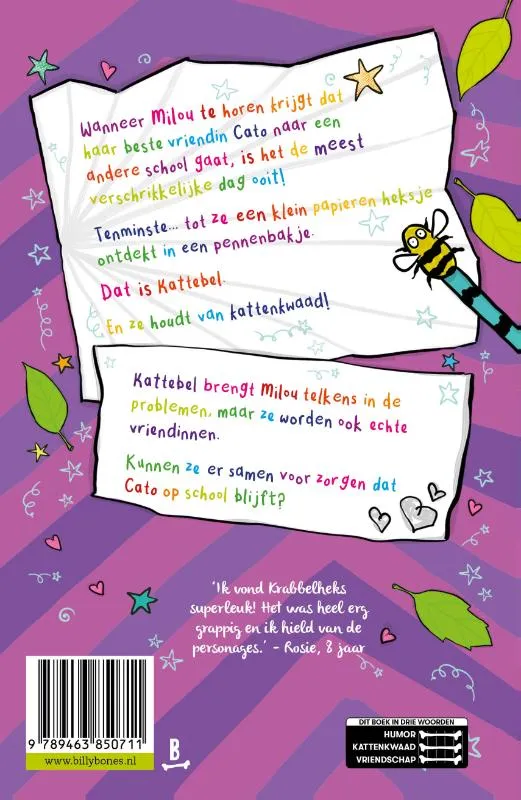 Wanneer Milou te horen krijgt dat
haar beste vriendin Cato naar een
andere school gaat, is het de meest
verschrikkelijke dag ooit!
Tenminste... tot ze een klein papieren heksje
ontdekt in een pennenbakje.
Dat is Kattebel.
En ze houdt van kattenkwaad!
Kattebel brengt Milou telkens in de
problemen, maar ze worden ook echte
vriendinnen.
Kunnen ze er samen voor zorgen dat
Cato op school blijft?
'Ik vond Krabbelheks
superleuk! Het was heel erg
grappig en ik hield van de
personages.' - Rosie, 8 jaar
9 789463 850711
www.billybones.nl
B
DIT BOEK IN DRIE WOORDEN
HUMOR
KATTENKWAAD
VRIENDSCHAP